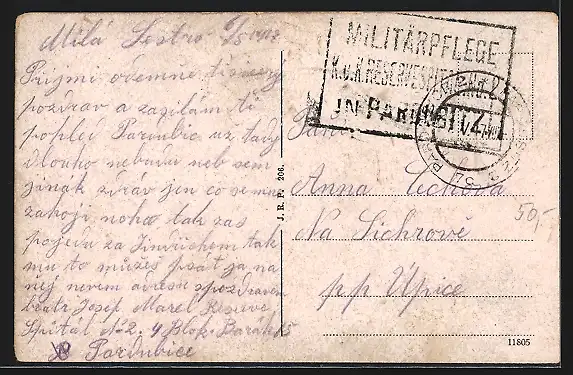 Milá Sestro 1918
Přijmi odemne tisicerý
pozdrav a zasílám ti
pohled Pardubic uz tady
dlouho nebudu neb sem
jinák zdráv jen co se mne
zahojí noha tak zas
pojedu za Jindřichem tak
mu to můžeš psát ja na
něj nevim adresu spozdravem
bratr Josip Marel Reserve
Spital No 2. 9 Blok. Barak 15
Pardubice
MILITÄRPFLEGE
K.u.K. RESERVESPITAL No. 2
IN PARDUBITZ.
PARDUBITZ
Paní
Anna
Na Sichrově
pp Úpice
50,-
J. R. P. 206.
11805